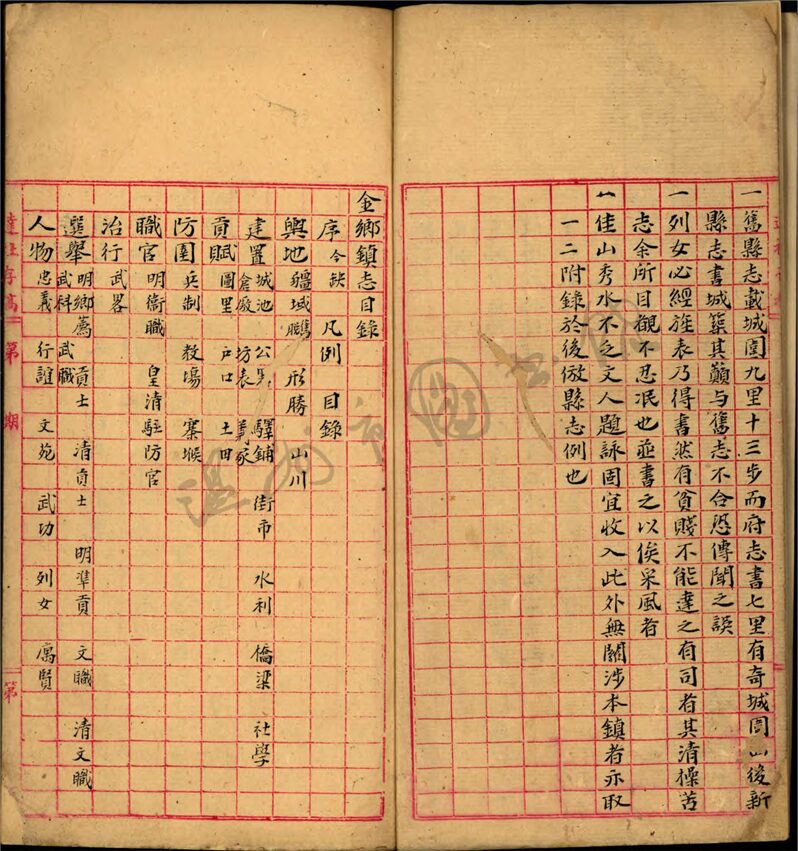 一舊縣志載城圍九里十三步而府志書七里有奇城圍山後新
縣志書城築其巔與舊志不合恐傳聞之誤
一列女必經旌表乃得書然有貧賤不能達之有司者其清操苦
志余所目覩不忍泯也並書之以俟采風者
一佳山秀水不乏文人題詠固宜收入此外無關涉本鎮者亦取
一二附錄於後倣縣志例也
金鄉鎮志目錄
序今缺 凡例 目錄
輿地 疆域 形勝 山川
建置 城池 公署 驛鋪 街市 水利 橋梁 社學
倉廒 坊表 義冢
貢賦 圖里 戶口 土田
防圉 兵制 教場 寨堠
職官 明衞職 皇清駐防官
治行 武畧
選舉 明鄉薦 貢士 清貢士 明準貢 文職 清文職
武科 武職
人物 忠義 行誼 文苑 武功 列女 寓賢
第 期
第